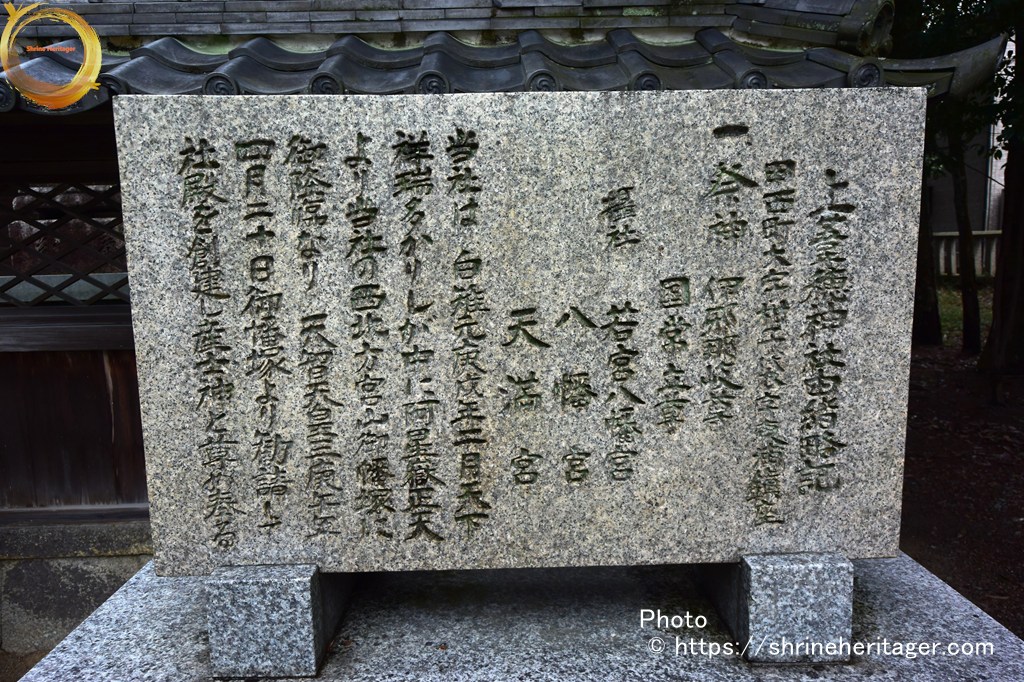 上葦穂神社由緒略記
甲西町大字柑子袋 鎮座
一、祭神 伊邪那岐尊
国常立尊
攝社 若宮八幡宮
八幡宮
天満宮
当社は白雉元庚戌年二月天下
祥瑞多かりしが中に阿星嶽正大
より当社の西北方宮山御幡塚に
御降臨なり 天智天皇三庚午年
四月二十日御幡塚より勧請して
社殿を創建し産土神と尊め奉る
Shrine Heritager
Photo
© https://shrineheritager.com